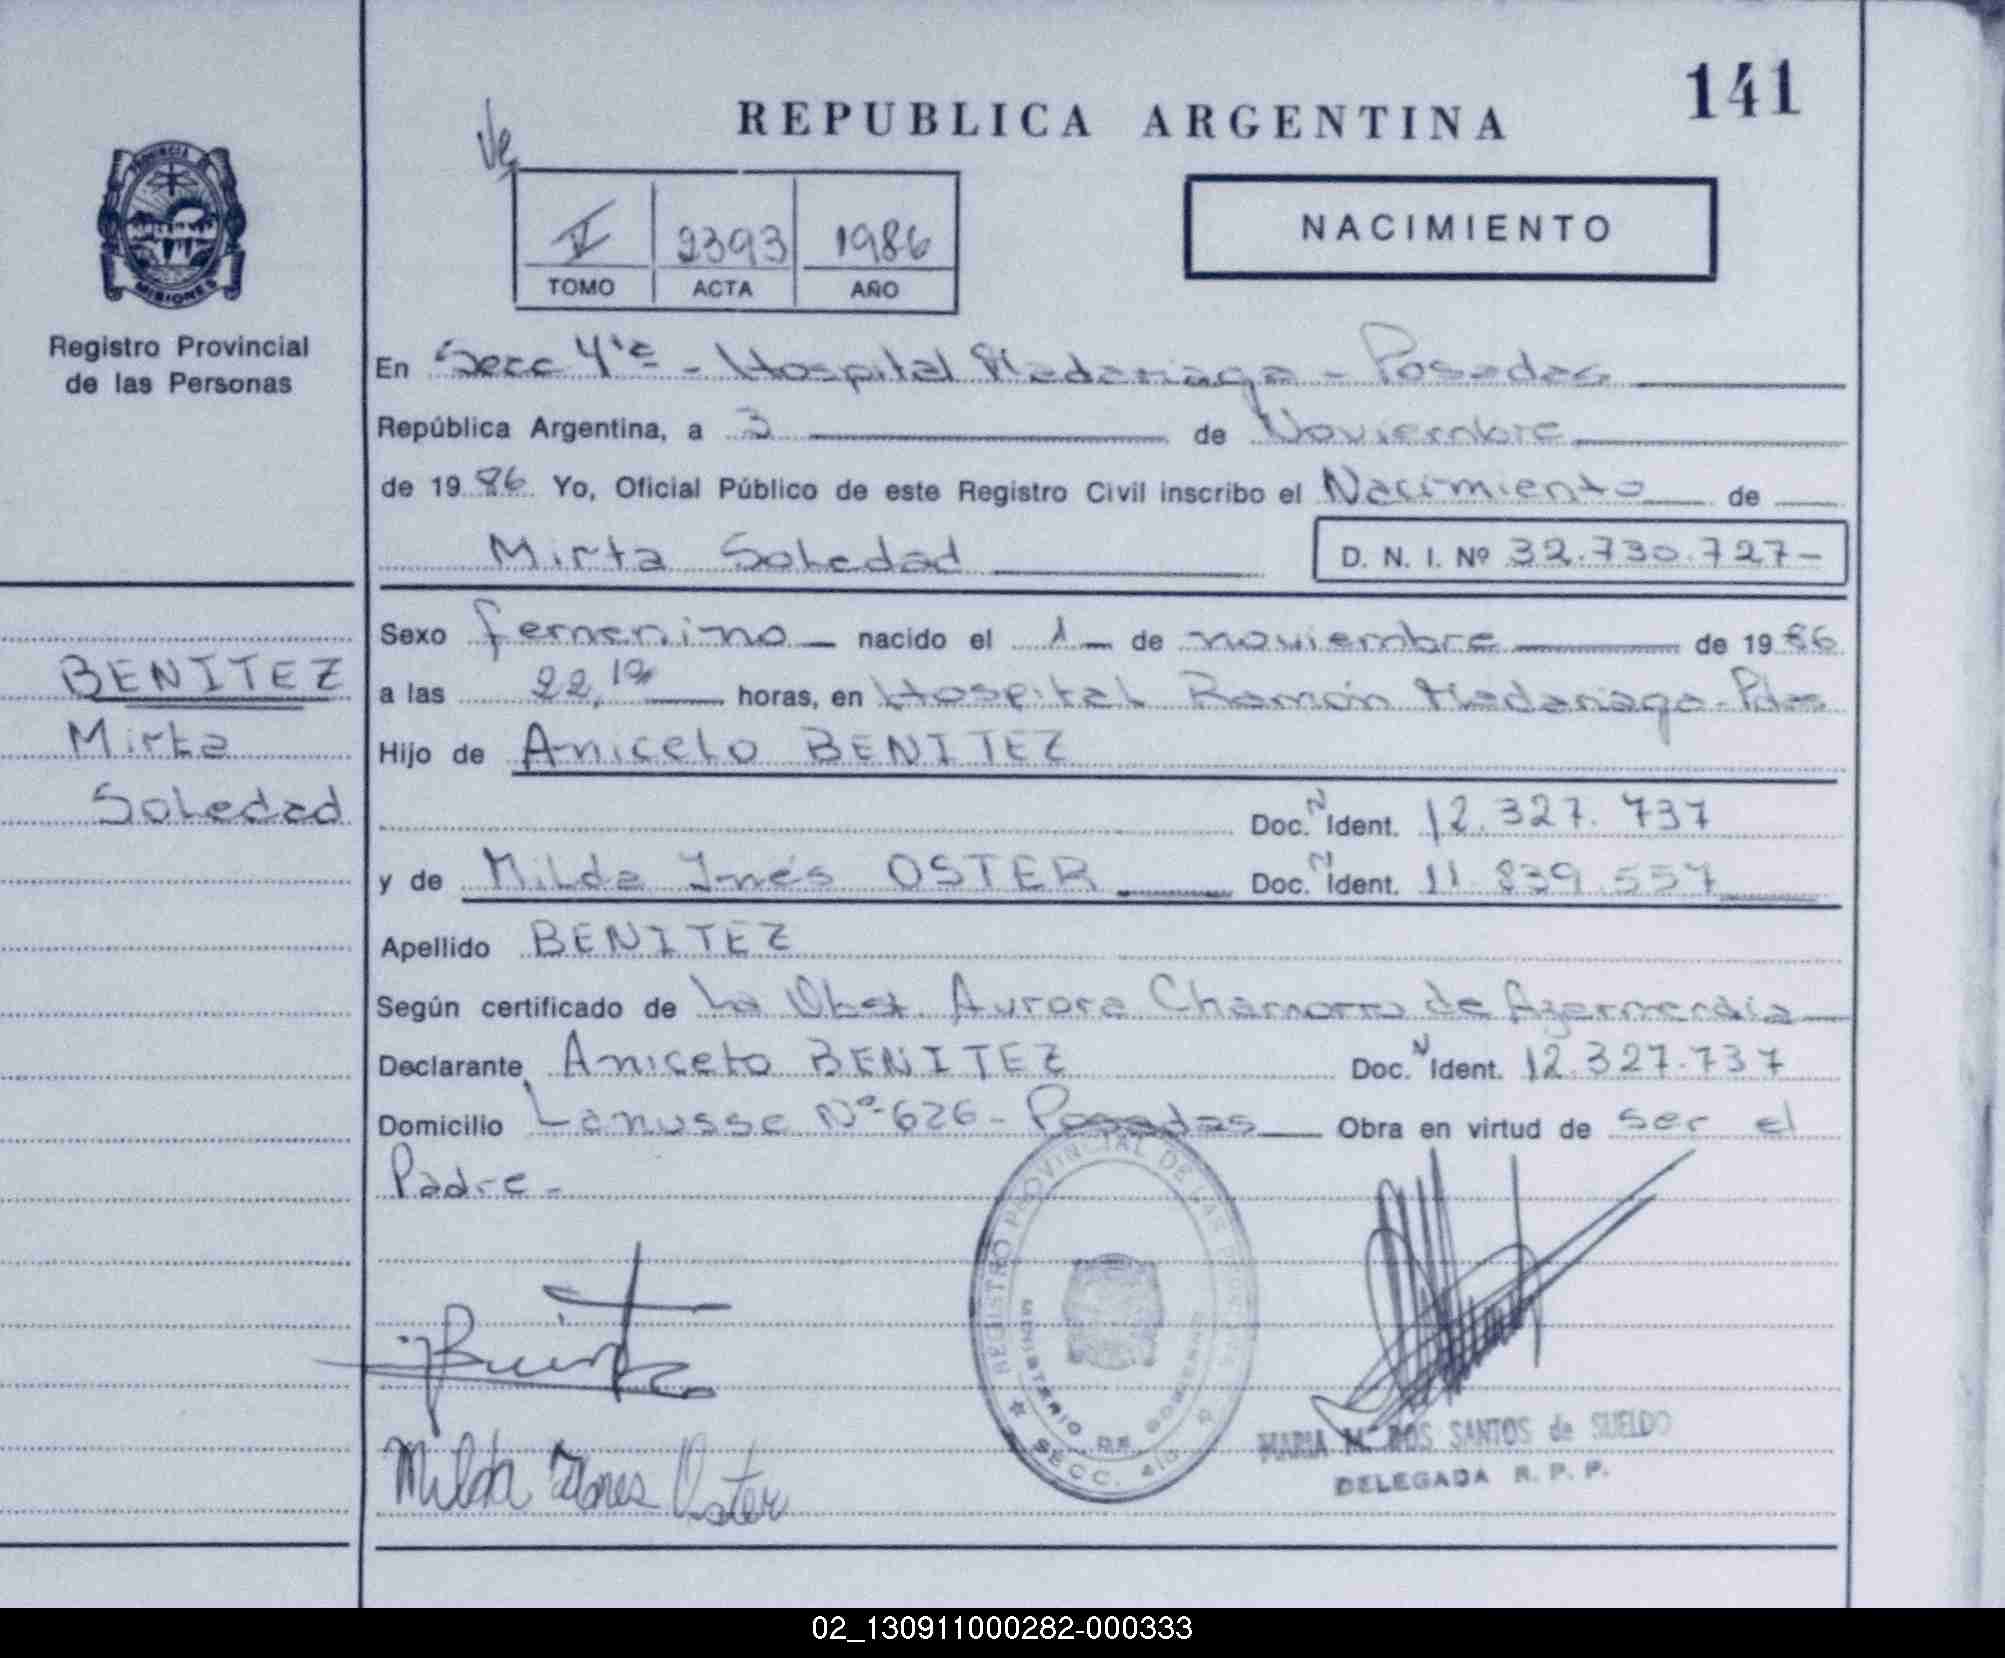 141
REPUBLICA ARGENTINA
PROVINCIA DE
MISIONES
Registro Provincial
de las Personas
V 2393 1986
TOMO ACTA AÑO
NACIMIENTO
En Secc 4ta - Hospital Madariaga - Posadas
República Argentina, a 3 de Noviembre
de 1986 Yo, Oficial Público de este Registro Civil inscribo el Nacimiento de
Mirta Soledad D. N. I. Nº 32.730.727-
Sexo femenino nacido el 1 de noviembre de 1986
a las 22,10 horas, en Hospital Ramón Madariaga - Pdas
Hijo de Aniceto BENITEZ
Doc. N Ident. 12.327.737
y de Milda Inés OSTER Doc. N Ident. 11.839.557
Apellido BENITEZ
Según certificado de La Obst. Aurora Chamorro de Azarmendia
Declarante Aniceto BENITEZ Doc. N Ident. 12.327.737
Domicilio Lanusse Nº 626 - Posadas Obra en virtud de ser el
Padre -
BENITEZ
Mirta
Soledad
REGISTRO PROVINCIAL DE LAS PERSONAS
MINISTERIO DE GOBIERNO
SECC. 4ta
Milda Ines Oster
MARIA M. DOS SANTOS de SUELDO
DELEGADA R. P. P.
02_130911000282-000333